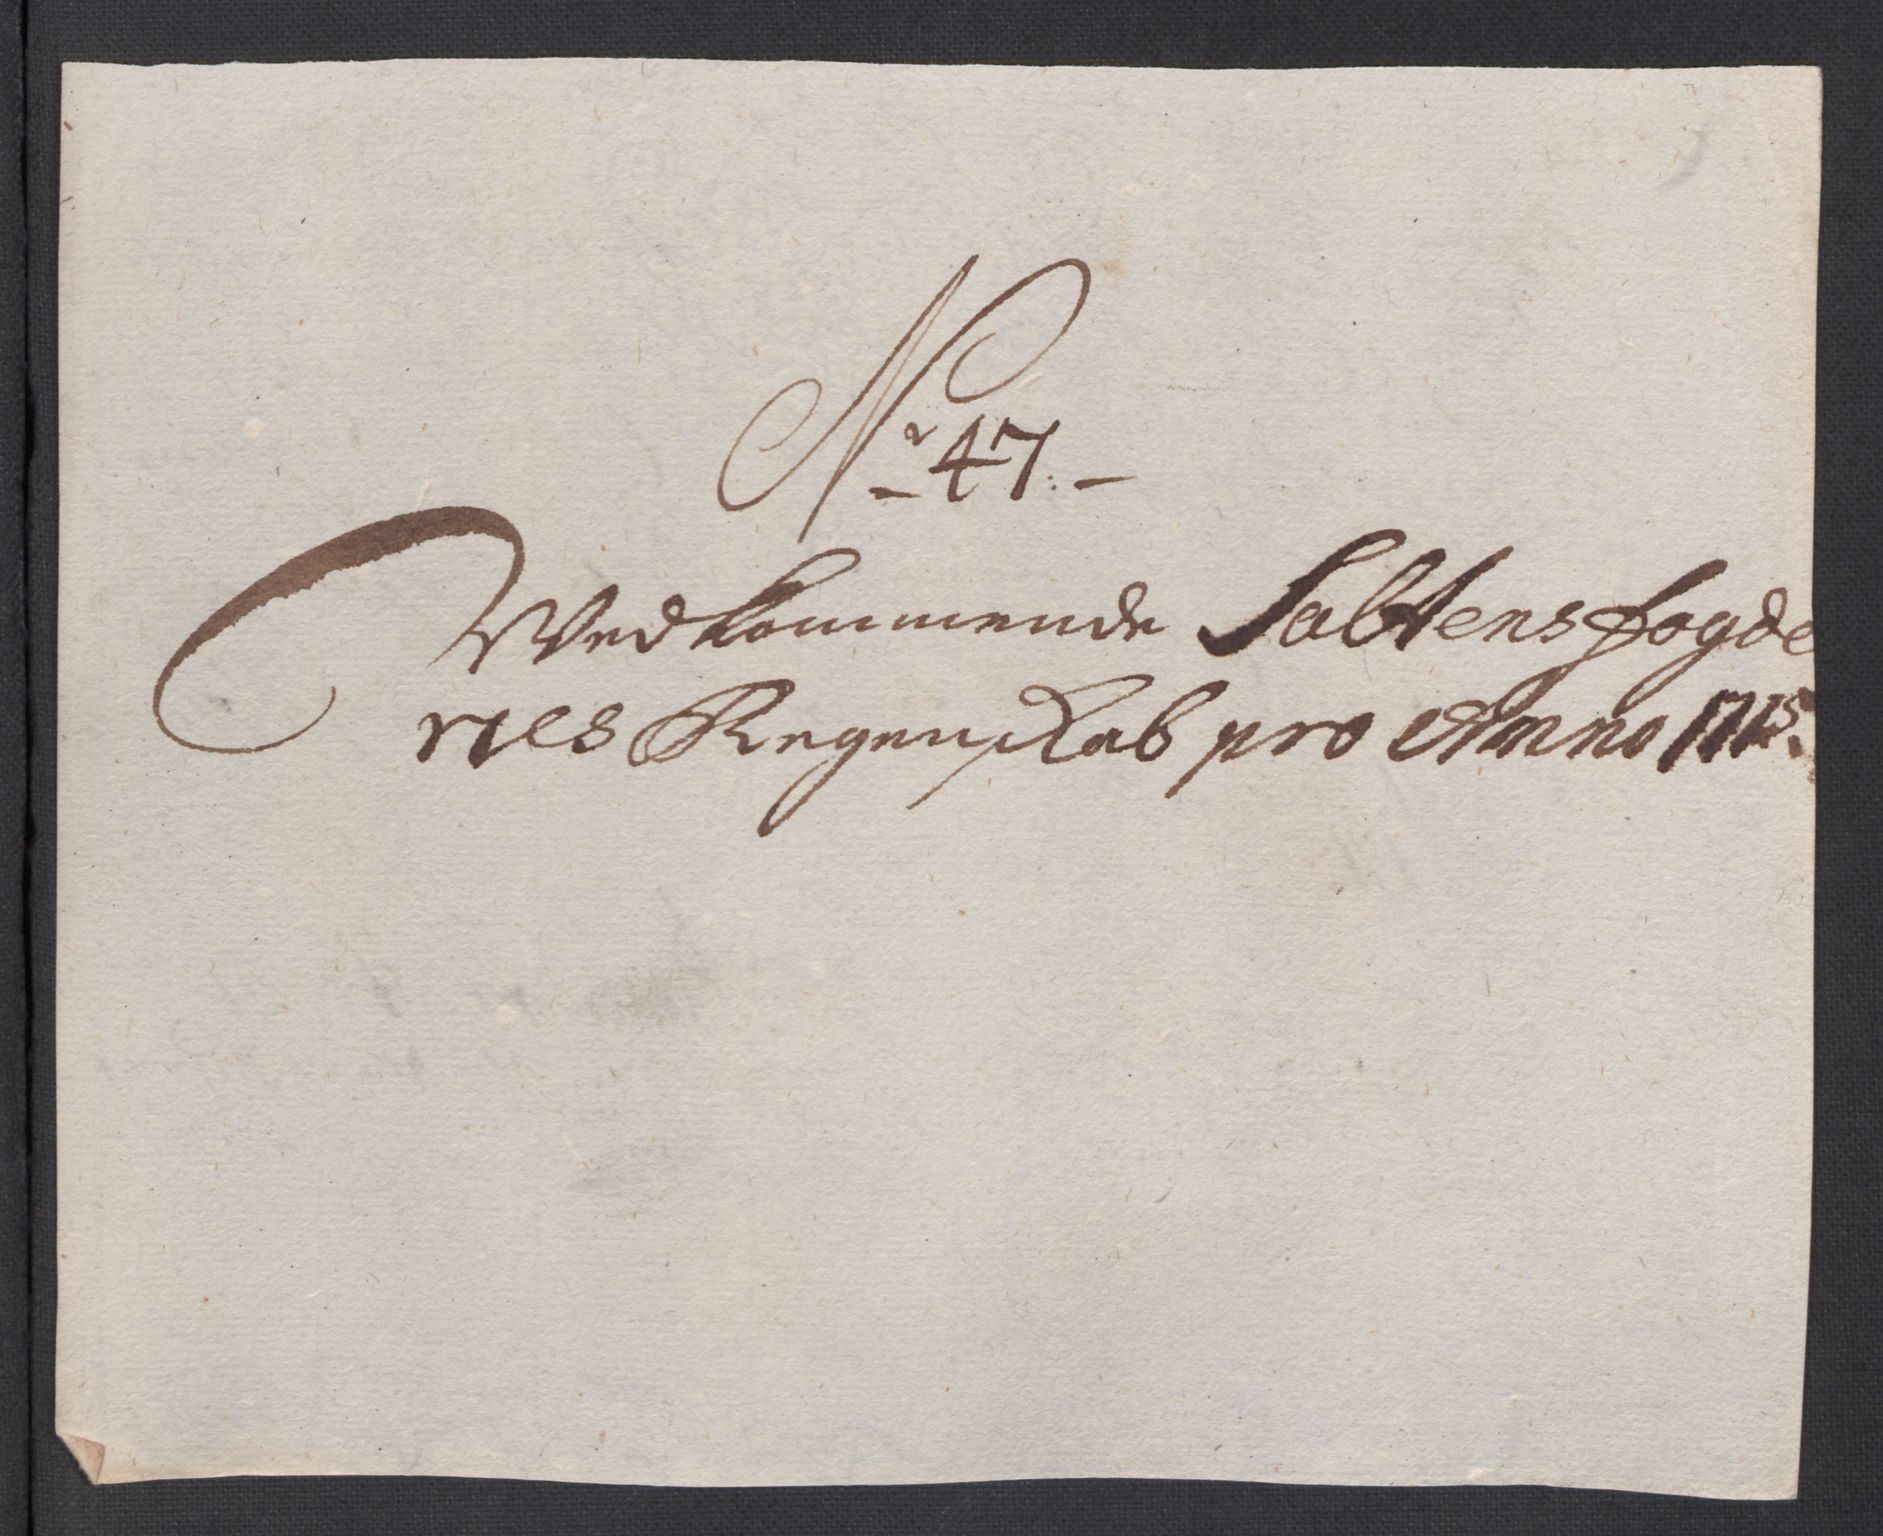 Nr 47.
Vedkommende Saltens fogde
ries Regenskab pro Anno 1715.